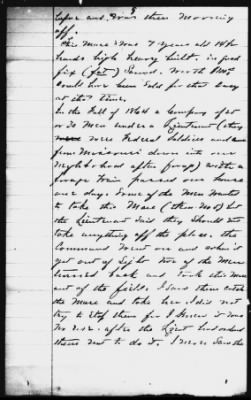 before and was then moving
off.
This Mare was 7 years old 14 1/2
hands high heavy built, in good
fix (fat) Sound. Worth $150
Could have been sold for that any
at that time.
In the Fall of 1862 a Company of 25
or 30 Men under a Lieutenant (they
were Federal Soldiers and
from Missouri down into our
Neighborhood after forage) with a
forage train passed our house
one day. Some of the Men wanted
to take this Mare (then No 1) but
the Lieutenant said they should not
take anything off the place. the
Command went on and when
got out of Sight two of the Men
turned back and took this Mare
out of the field. I saw them catch
the Mare and take her. I did not
try to stop them for I knew it was
no use. after the Lieut had ordered
them not to do it. I never saw the